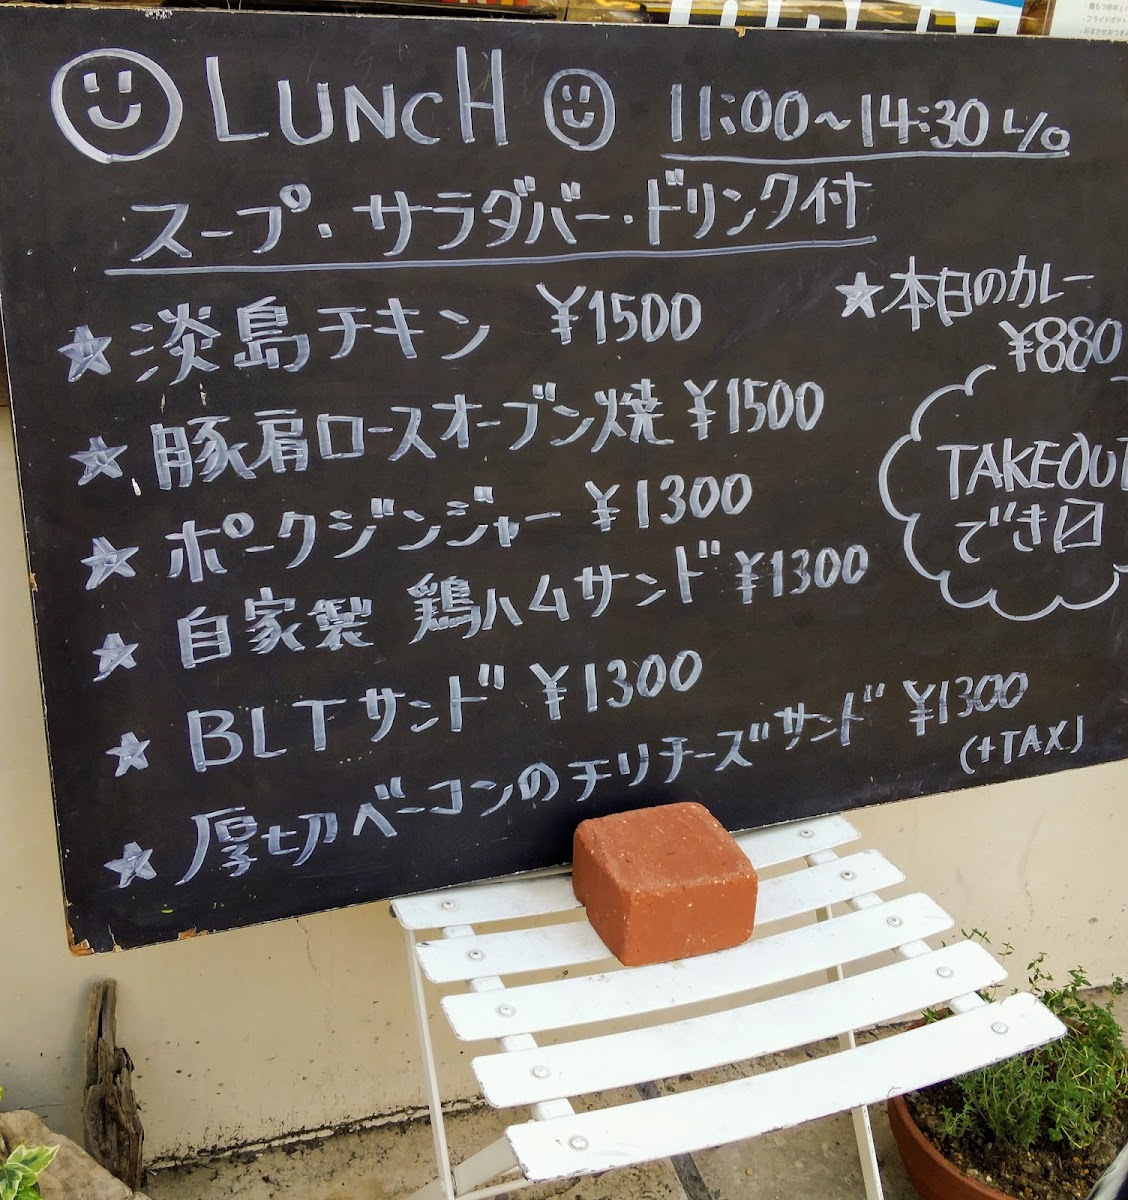 LUNCH 11:00~14:30 L/O
スープ・サラダバー・ドリンク付
★淡島チキン ¥1500
★豚肩ロースオーブン焼 ¥1500
★ポークジンジャー ¥1300
★自家製 鶏ハムサンド ¥1300
★BLTサンド ¥1300
★厚切ベーコンのチリチーズサンド ¥1300
(+TAX)
★本日のカレー
¥880
TAKEOUT
でき〼